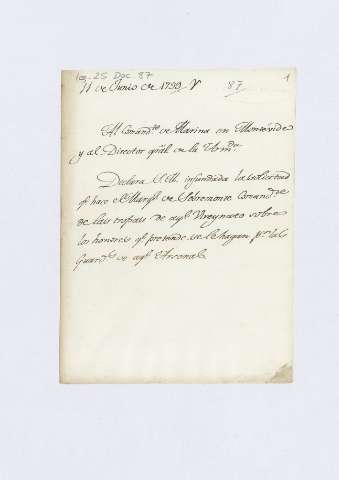 leg. 25 Doc 87
11 de Junio de 1799
87
1
Al Comand.te de Marina en Montevideo
y al Director gral de la Arm.da
Declara S.M. infundada la solicitud
q.e hace el Marq.s de Sobremonte Comand.te
de las tropas de aql Virreynato sobre
los honores q.e pretende se le hagan p.r las
Guard.s de aql Arsenal.